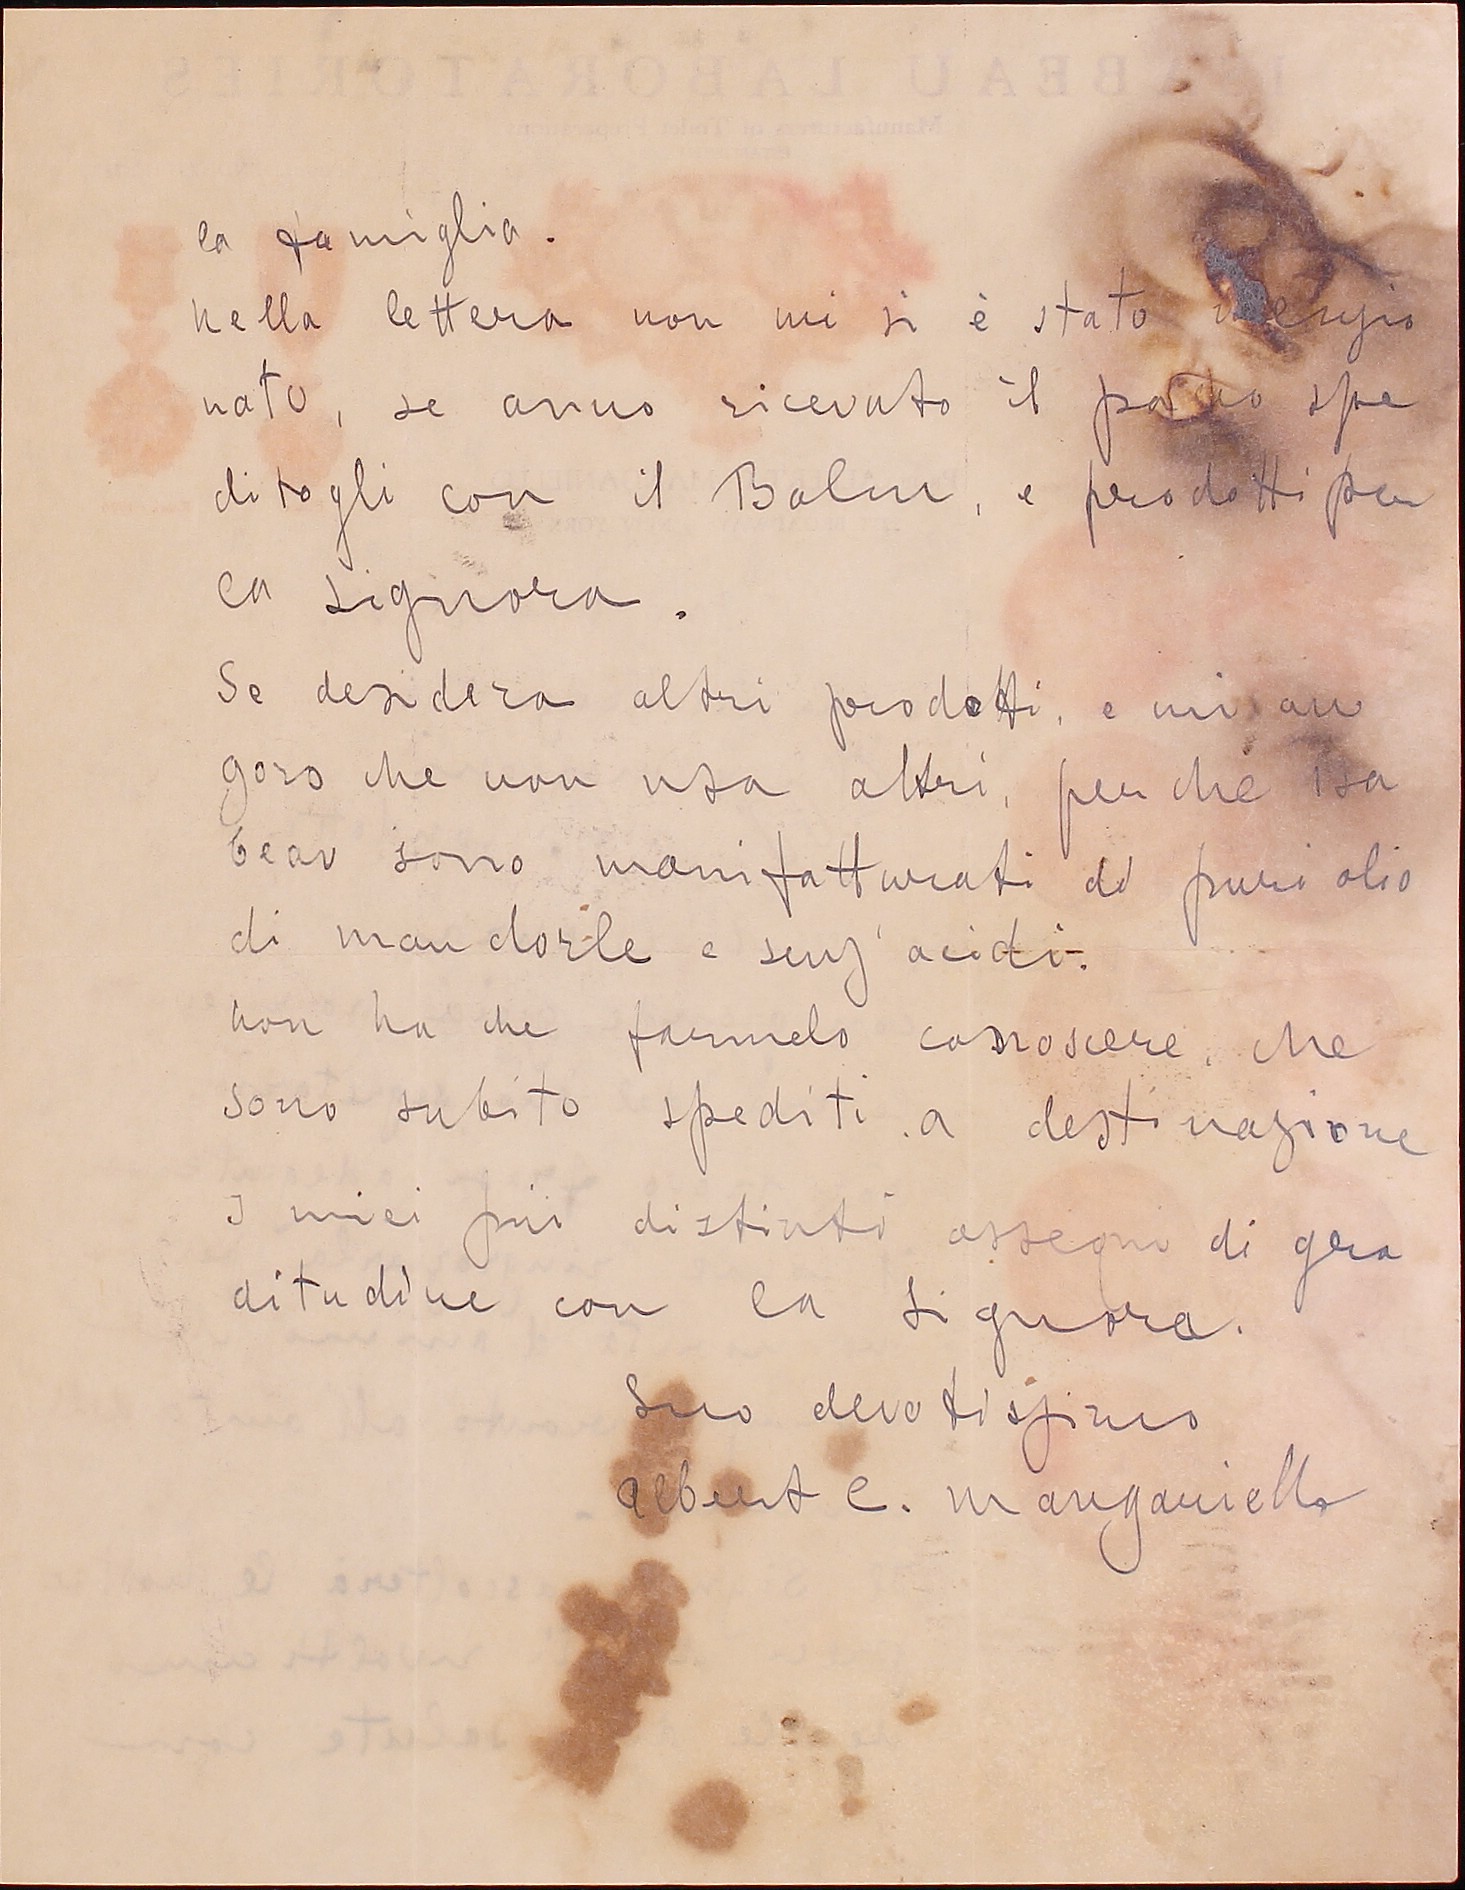 la famiglia.
Nella lettera non mi si è stato menzio
nato, se anno ricevuto il pacco spe
ditogli con il Balm, e prodotti per
la signora.
Se desidera altri prodotti, e mi au
goro che non usa altri, perchè Isa
beau sono manifatturati di puri olio
di mandorle e senz'acidi.
Non ha che farmelo conoscere, che
sono subito spediti a destinazione
I miei più distinti ossequi di gra
ditudine con la Signora.
Suo devotissimo
Albert C. Manganiello